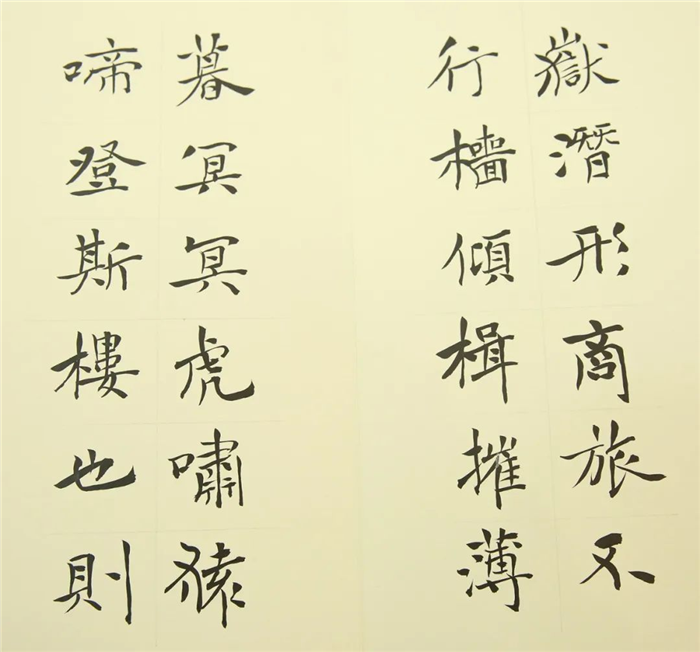 嶽潛形商旅不
行檣傾楫摧薄
暮冥冥虎嘯猿
啼登斯樓也則